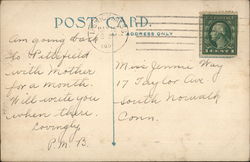 POST CARD.
ADDRESS ONLY
Am going back
to Pittsfield
with Mother
for a month.
Will write you
when there.
Lovingly
P. M. B.
Miss Jennie Way
17 Taylor Ave
South Norwalk
Conn.